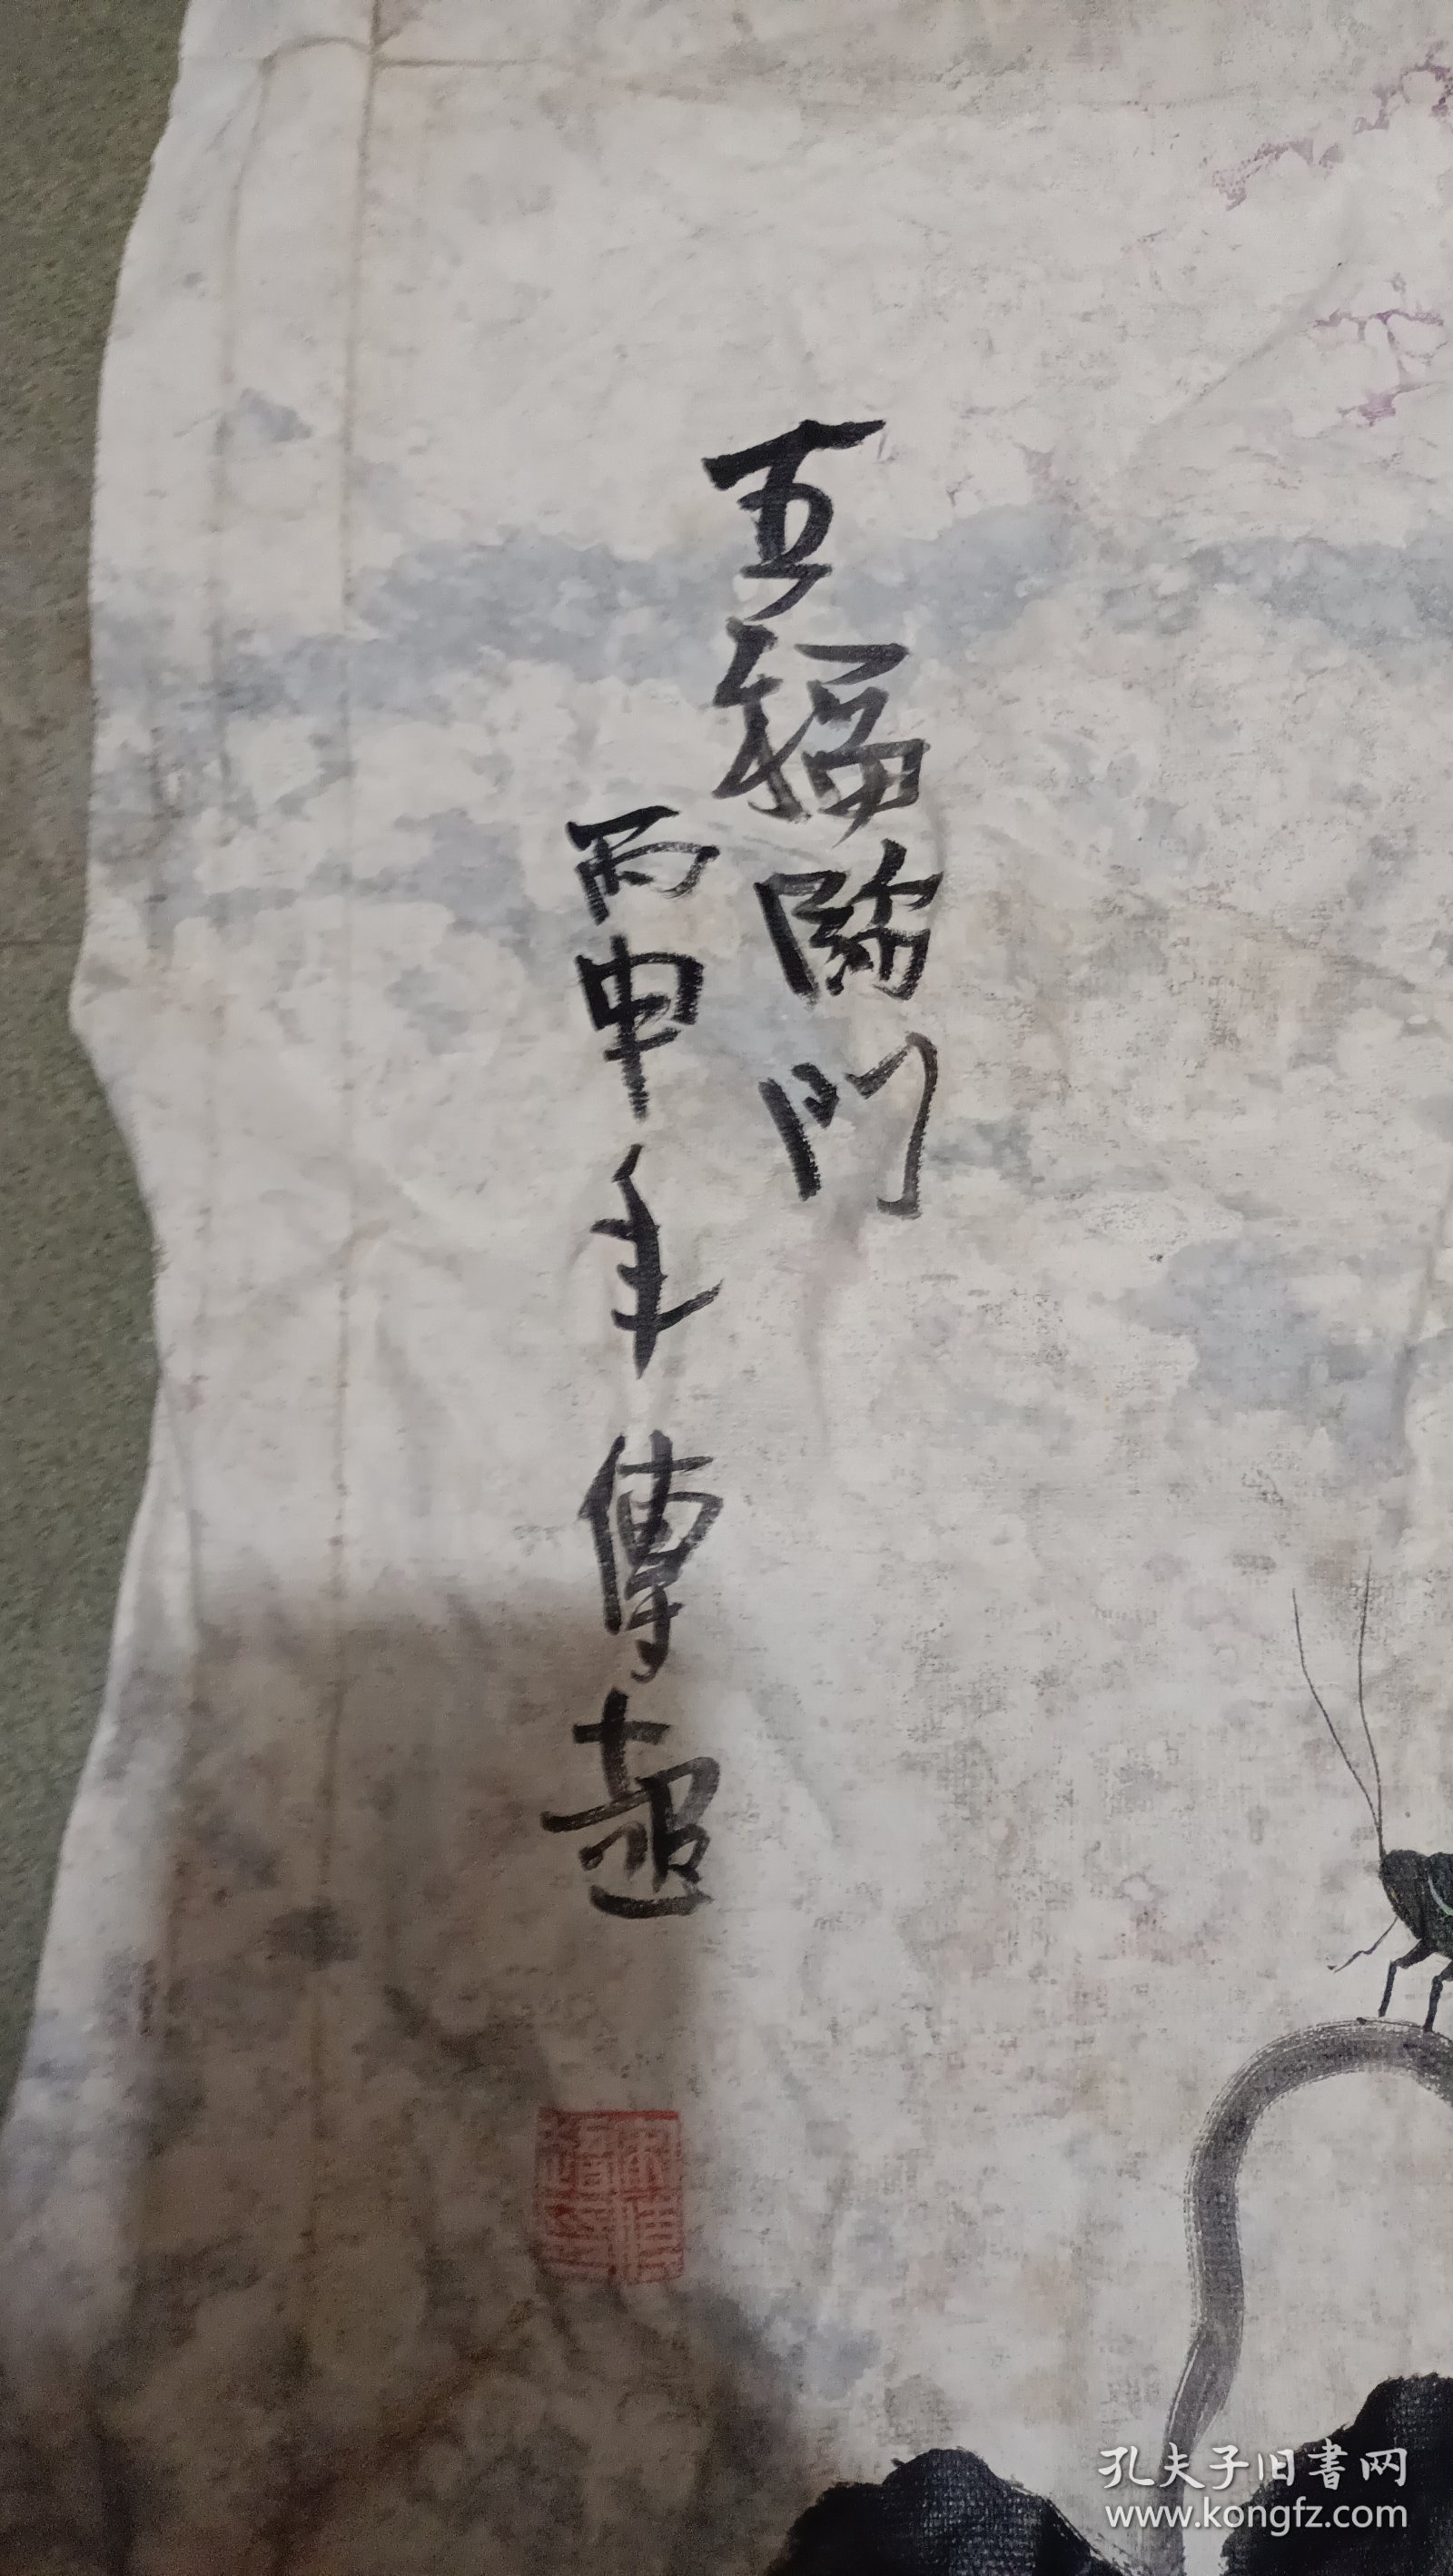 五福臨門
丙申年傳超
孔夫子旧书网
www.kongfz.com